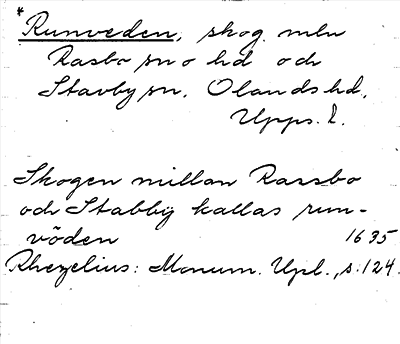 * Runveden, skog mln
Rasbo sn o hd och
Stavby sn, Olands hd,
Upps. l.
Skogen millan Rassbo
och Stabbÿ kallas run-
vöden 1635
Rhezelius: Monum. Upl., s. 124.